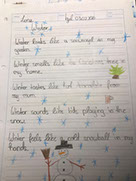 Winter
Winter looks like a snowman in my
garden.
Winter smells like
my home.
Winter tastes like hot
from my mum.
Winter sounds like kids playing in the
snow.
Winter feels like a cold snowball in my
hands.